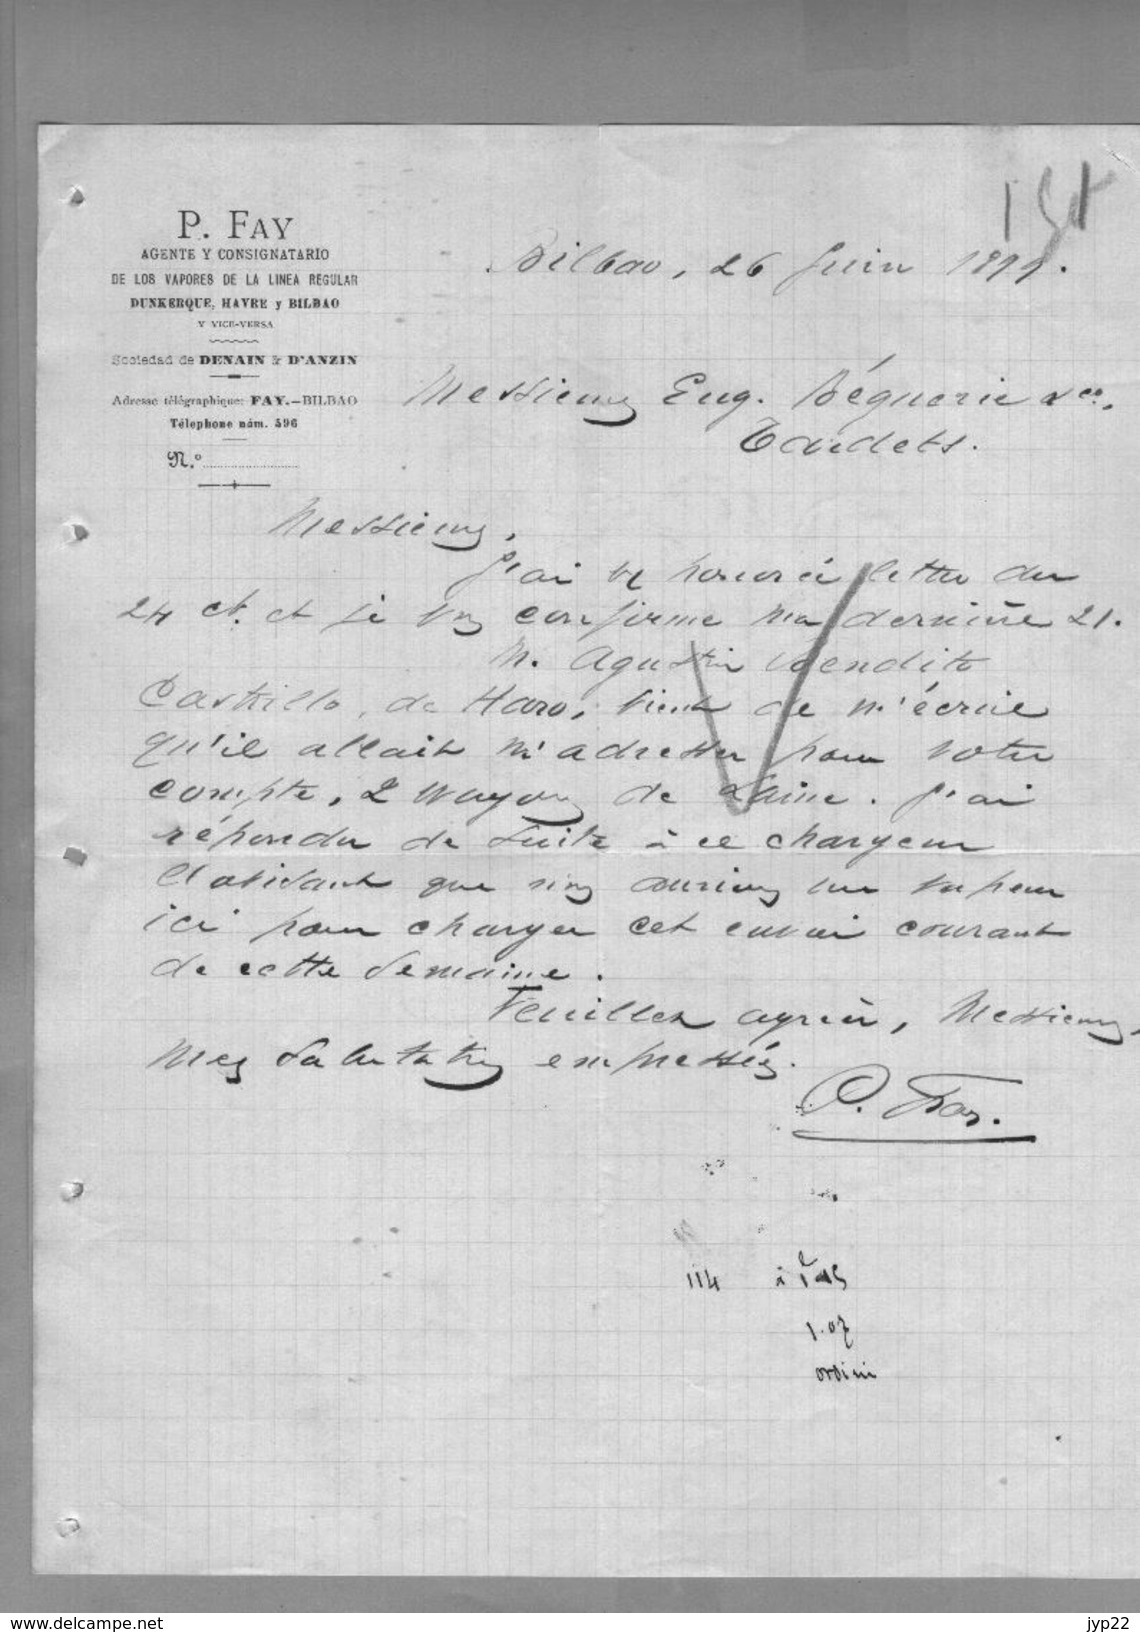 P. FAY
AGENTE Y CONSIGNATARIO
DE LOS VAPORES DE LA LINEA REGULAR
DUNKERQUE, HAVRE y BILBAO
Y VICE-VERSA
Sociedad de DENAIN & D'ANZIN
Adresse télégraphique: FAY.—BILBAO
Télephone núm. 596
N.º
Bilbao, 26 Juin 1899.
Messieurs Eug. Béguerie & Cie.
Tardets.
Messieurs,
J'ai vre honorée lettre du
24 ct. et je vous confirme ma dernière 21.
M. Agustin Vendito
Castrillo, de Haro, vient de m'écrire
qu'il allait m'adresser pour votre
compte, 2 wagons de Laine. J'ai
répondu de suite à ce chargeur
l'avisant que nous aurions un vapeur
ici pour charger cet envoi courant
de cette semaine.
Veuillez agréer, Messieurs,
mes salutations empressées.
P. Fay.
114 à
1.07
ordini
www.delcampe.net
jyp22